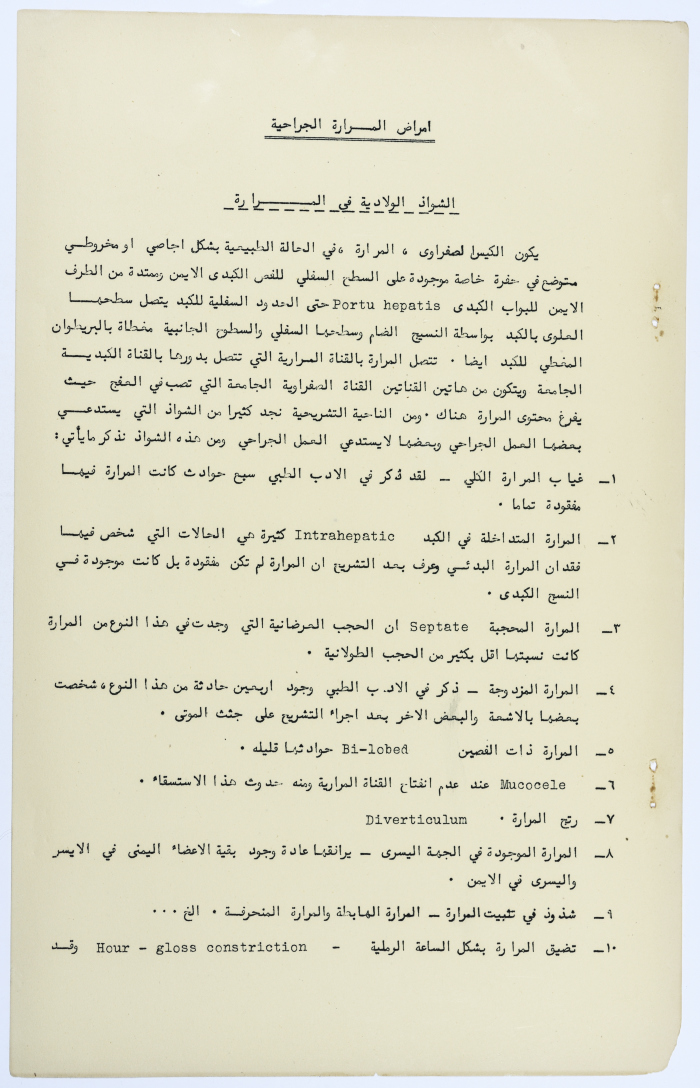 امراض المـــرارة الجراحية
الشواذ الولادية في المـــــرارة
يكون الكيس الصفراوى ، المرارة ،في الحالة الطبيعية بشكل اجاصي او مخروطـي
متوضع في حفرة خاصة موجودة على السطح السفلي للفص الكبدى الايمن وممتدة من الطرف
الايمن للبواب الكبدى Portu hepatis حتى الحدود السفلية للكبد يتصل سطحهـا
العلوى بالكبد بواسطة النسيج الضام وسطحها السفلي والسطوح الجانبية مغطاة بالبريطوان
المغطي للكبد ايضا ٠ تتصل المرارة بالقناة المرارية التي تتصل بدورها بالقناة الكبديـــة
الجامعة ويتكون من هاتين القناتين القناة الصفراوية الجامعة التي تصب في العفج حيـث
يفرغ محتوى المرارة هناك ٠ ومن الناحية التشريحية نجد كثيرا من الشواذ التي يستدعـــي
بعضها العمل الجراحي وبعضها لايستدعي العمل الجراحي ومن هذه الشواذ نذكر مايأتي:
١ـ غياب المرارة الكلي ـ لقد ذكر في الادب الطبي سبع حوادث كانت المرارة فيهــا
مفقودة تماما ٠
٢ـ المرارة المتداخلة في الكبد Intrahepatic كثيرة هي الحالات التي شخص فيهــا
فقدان المرارة البدئي وعرف بعد التشريح ان المرارة لم تكن مفقودة بل كانت موجودة فــي
النسج الكبدى ٠
٣ـ المرارة المحجبة Septate ان الحجب العرضانية التي وجدت في هذا النوع من المرارة
كانت نسبتها اقل بكثير من الحجب الطولانية ٠
٤ـ المرارة المزدوجة ـ ذكر في الادب الطبي وجود اربعين حادثة من هذا النوع، شخصت
بعضها بالاشعة والبعض الاخر بعد اجراء التشريح على جثث الموتى ٠
٥ـ المرارة ذات الفصين Bi-lobed حوادثها قليله ٠
٦ـ Mucocele عند عدم انفتاح القناة المرارية ومنه حدوث هذا الاستسقاء ٠
٧ـ رتج المرارة ٠ Diverticulum
٨ـ المرارة الموجودة في الجهة اليسرى ـ يرافقها عادة وجود بقية الاعضاء اليمنى في الايسر
واليسرى في الايمن ٠
٩ـ شذوذ في تثبيت المرارة ـ المرارة الهابطة والمرارة المنحرفة ٠ الخ ٠٠٠
١٠ـ تضيق المرارة بشكل الساعة الرملية - Hour - gloss constriction وقـد